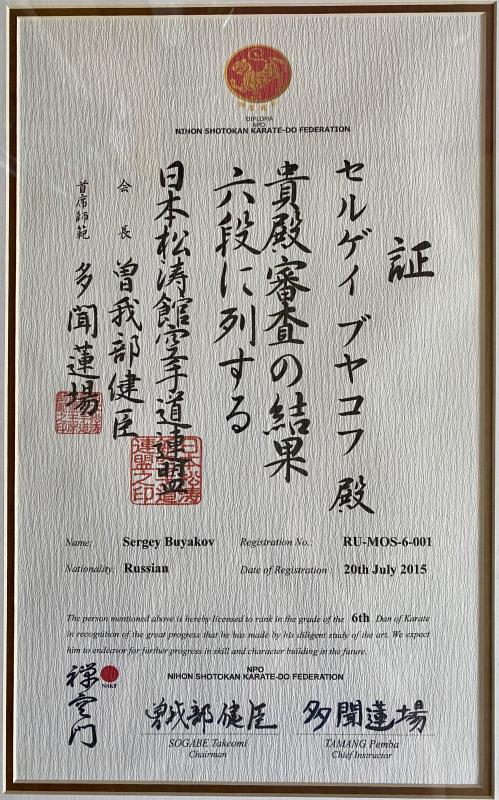 DIPLOMA
NPO
NIHON SHOTOKAN KARATE-DO FEDERATION
証
セルゲイ ブヤコフ 殿
貴殿審査の結果
六段に列する
日本松涛館空手道連盟
会長 曽我部健臣
首席師範 多聞蓮場
日本松涛館空手道連盟之印
Name: Sergey Buyakov Registration No.: RU-MOS-6-001
Nationality: Russian Date of Registration : 20th July 2015
The person mentioned above is hereby licensed to rank in the grade of the 6th Dan of Karate
in recognition of the great progress that he has made by his diligent study of the art. We expect
him to endeavor for further progress in skill and character building in the future.
NPO
NIHON SHOTOKAN KARATE-DO FEDERATION
禅空門
NSKF
曽我部健臣 多聞蓮場
SOGABE Takeomi TAMANG Pemba
Chairman Chief Instructor